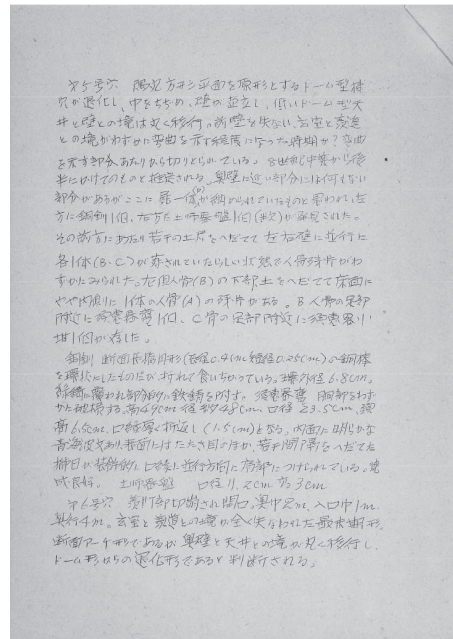 第5号穴 隅丸方形平面を原形とするドーム型横
穴が退化し、巾をちぢめ、壁が直立し、低いドーム型天
井と壁との境は丸く移行。前壁を失ない、玄室と羨道
との境がわずかに弯曲を示す程度になった時期か?弯曲
を示す部分あたりから切りとられている。8世紀中葉から後
半にかけてのものと推定される。奥壁に近い部分には何もない
部分があるがここに 一体 が納められていたものと思われ、左
方に銅釧1個、右方に土師器盌1個 が発見された。
その前方にあたり若干の土層をへだてて左右壁に並行に
各1体(B・C)が葬されていたらしい状態で人骨残片がわ
ずかにみられた。左側人骨(B)の下部土をへだてて床面に
やや内側に1体の人骨(A)の残片がある。B人骨の足部
附近に須恵器甕1個、C骨の足部附近に須恵器小
坩1個が存した。
銅釧 断面長楕円形(長径0.4cm 短径0.25cm)の銅棒
を環状にしたものだが折れて食いちがっている。環外径6.8cm。
緑錆に覆われ部分的に鉄錆を附す。須恵器甕 胴部をわず
かに破損する。高49cm 径約48cm、口径23.5cm、頸
高6.5cm、口縁厚く折返し(1.5cm)となる。内面に明らかな
青海波文あり、表面には たたき目のほか、若干間隔をへだてた
櫛目が装飾的に口縁に並行方向に局部につけられている。焼
成良好。 土師器盌 口径11.2cm 高3cm
第6号穴 羨門部切断され開口。奥巾2m、入口巾1m、
奥行4m。玄室と羨道との境が全く失なわれた最末期形。
断面アーチ形であるが奥壁と天井との境が丸く移行し、
ドーム形からの退化形であると判断される。